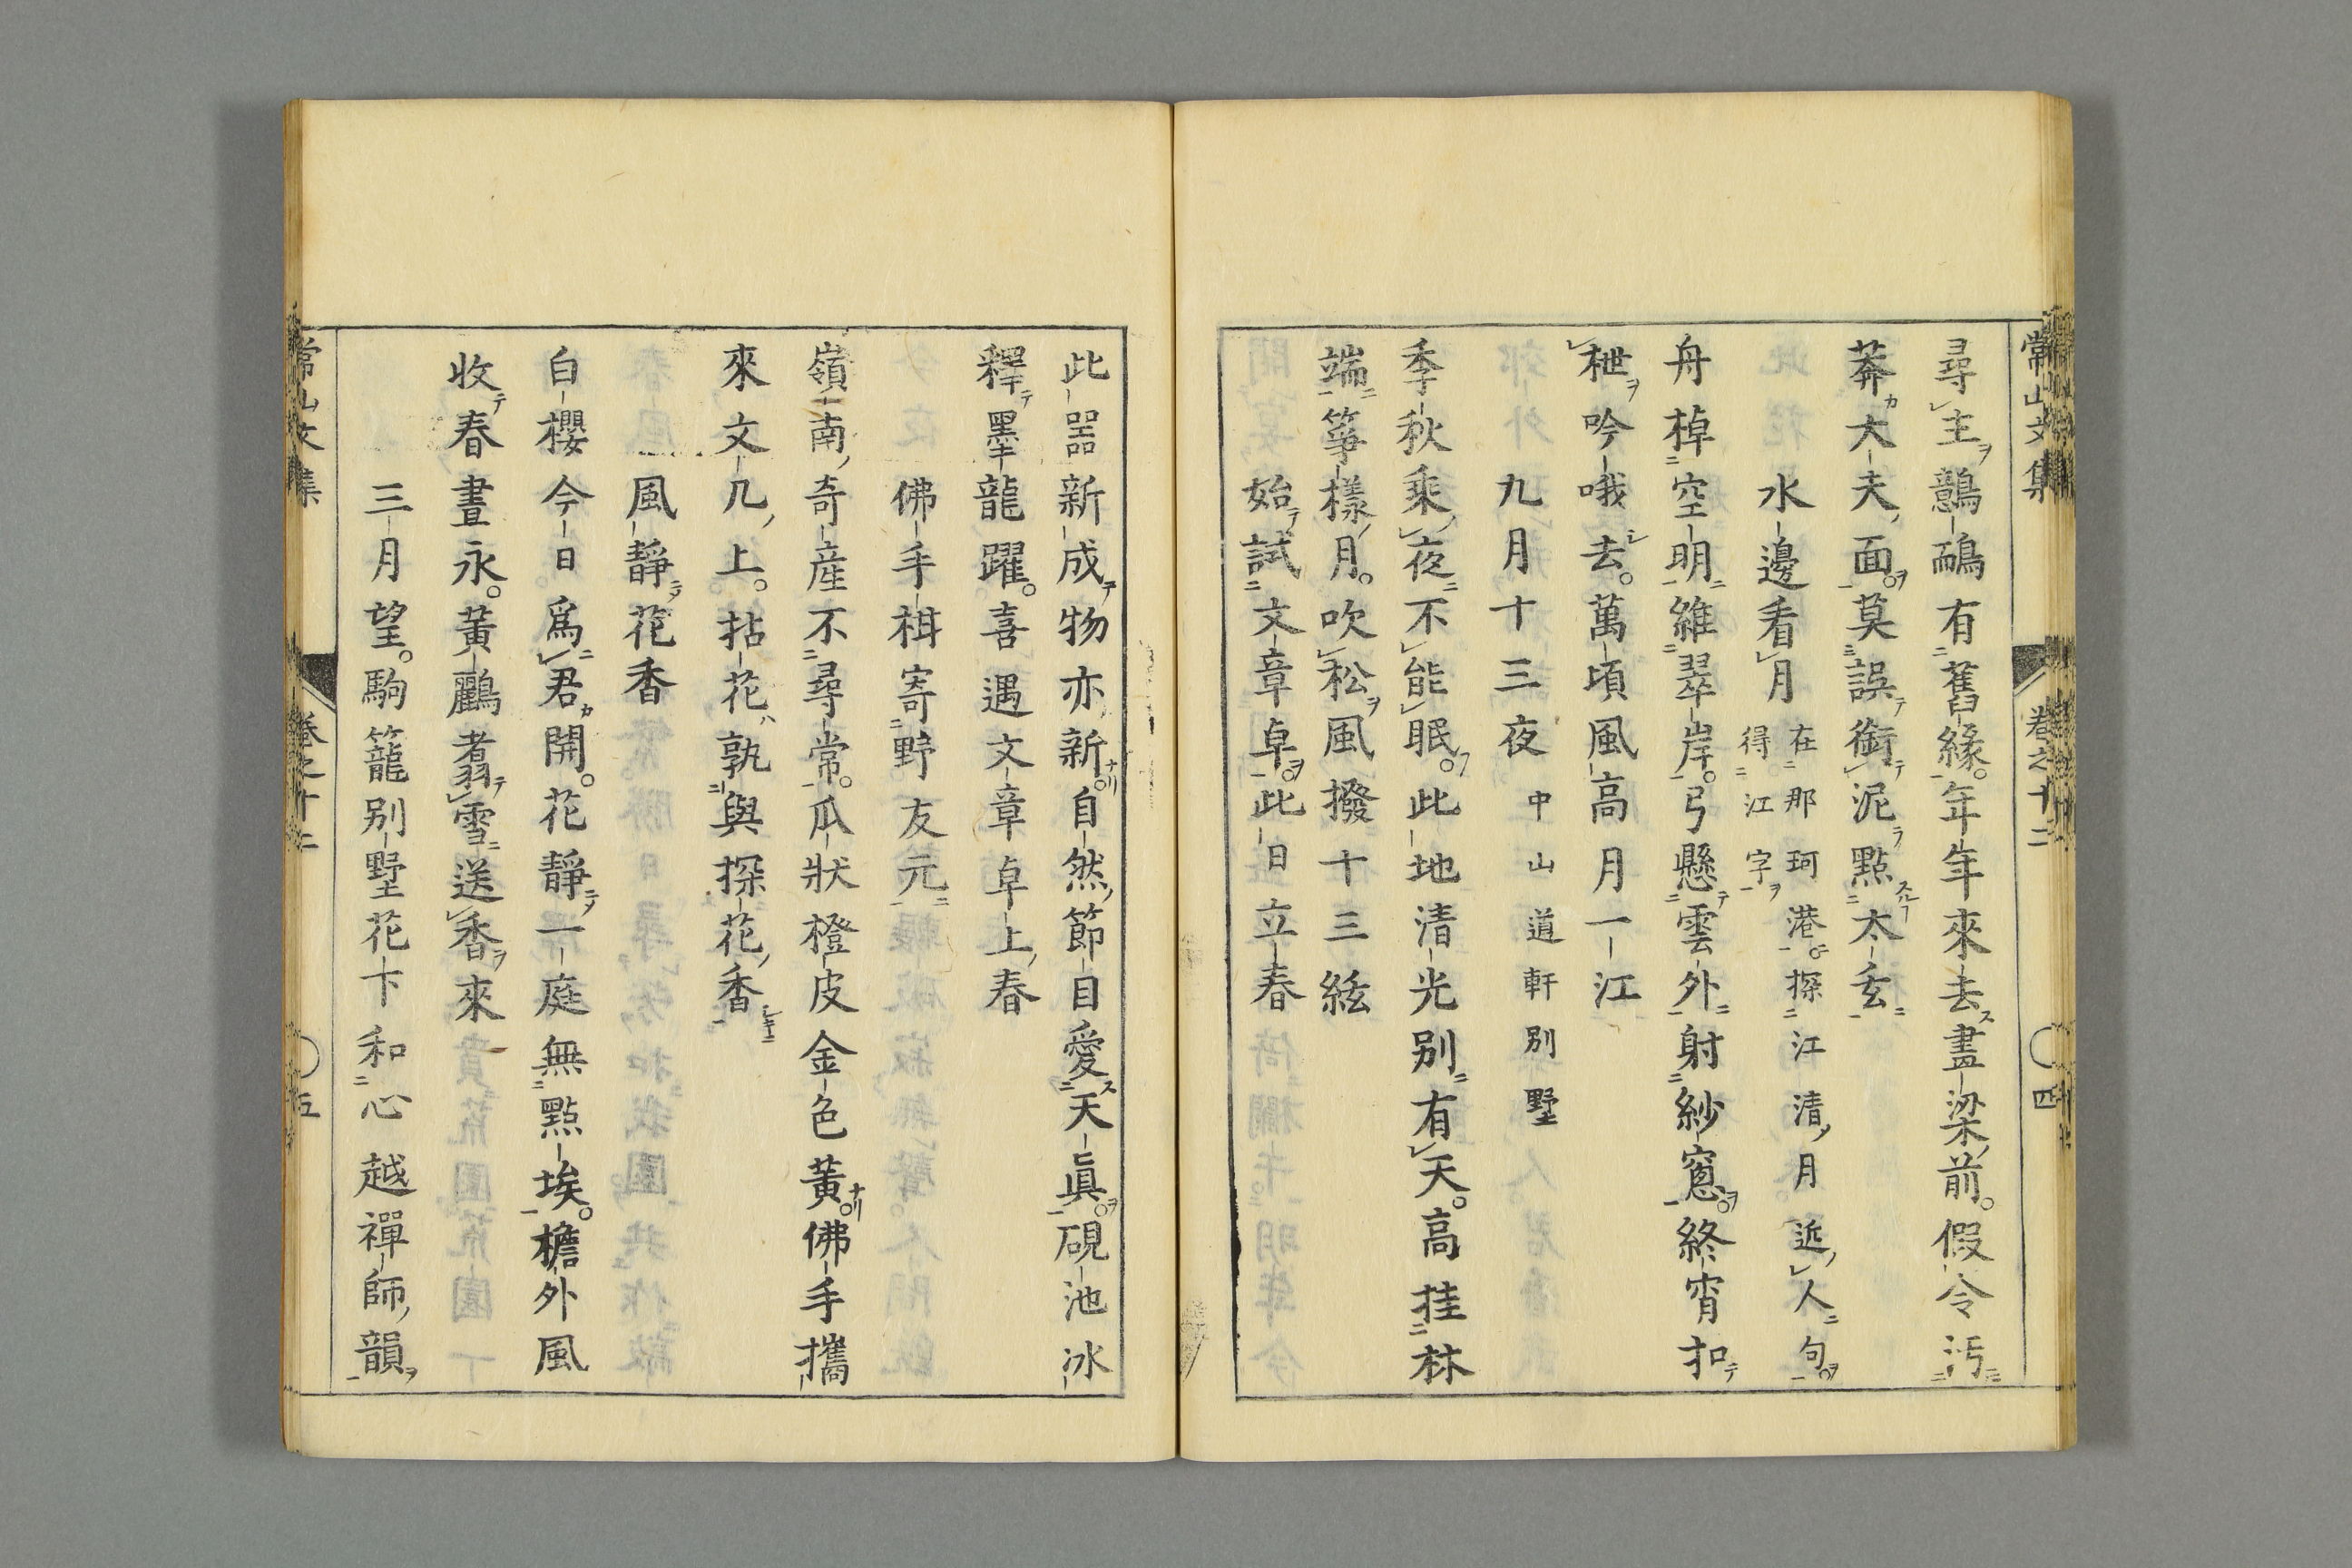 常山文集
卷之十二
四
尋主鷾鴯有舊緣。年年來去盡梁前。假令汚
莽大夫面。莫誤銜泥點太玄
水邊看月
在那珂港。探江清月近人句。
得江字
舟棹空明維翠岸。弓懸雲外射紗窻。終宵扣
枻吟哦去。萬頃風高月一江
九月十三夜
中山道軒別墅
季秋乘夜不能眠。此地清光別有天。高挂林
端箏樣月。吹松風撥十三絃
始試文章卓。此日立春
此器新成物亦新。自然節目愛天眞。硯池冰
釋墨龍躍。喜遇文章卓上春
佛手柑寄野友元
嶺南奇産不尋常。瓜狀橙皮金色黃。佛手攜
來文几上。拈花孰與探花香
風靜花香
白櫻今日爲君開。花靜一庭無點埃。檐外風
收春晝永。黃鸝翥雪送香來
三月望。駒籠別墅花下和心越禪師韻
常山文集
卷之十二
五